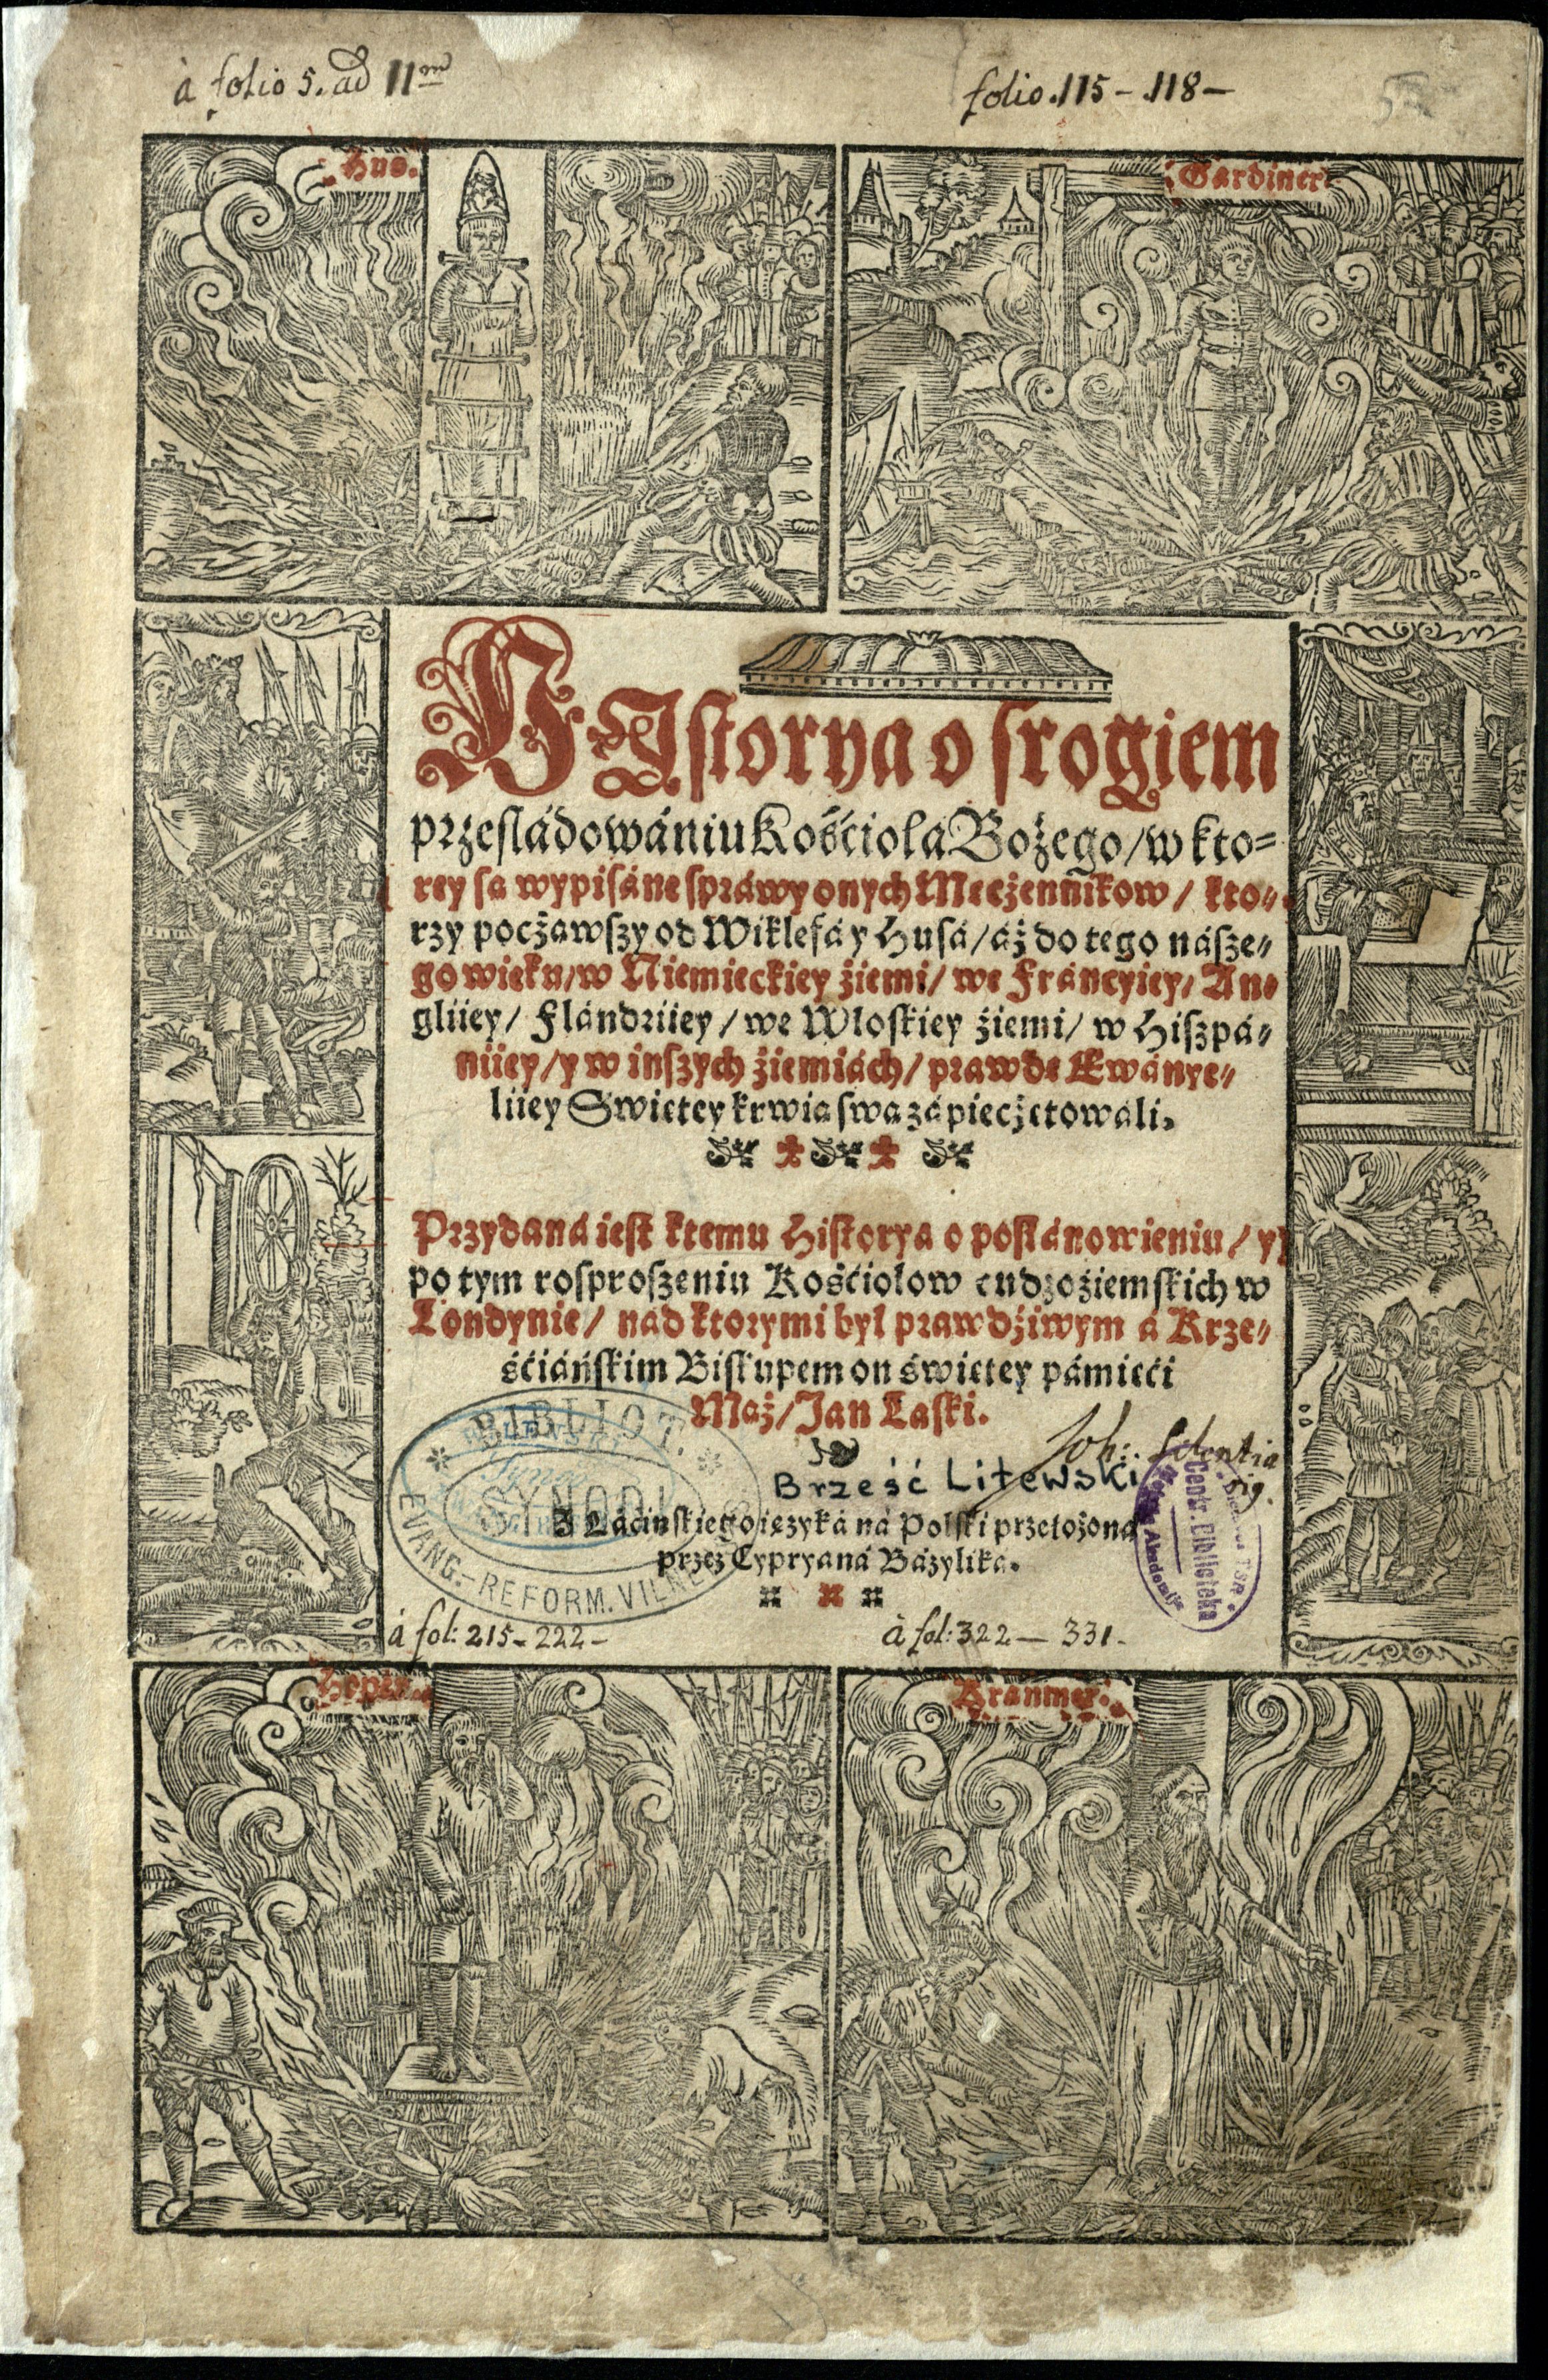 à folio 5. ad 11m
folio. 115 - 118 -
Hus.
Gardiner
HIstorya o srogiem
przesládowániu Kośćiola Bożego/ w kto=
rey sa wypisáne spráwy onych Meczennikow/ kto=
rzy poczawszy od Wiklefá y Husá/ áż do tego násze=
go wieku/ w Niemieckiey źiemi/ we Fráncyiey/ An=
gliiey/ Flándriiey/ we Wloskiey źiemi/ w Hiszpá=
niiey/ y w inszych źiemiách/ prawde Ewánye=
liiey Swietey krwia swa zápieczetowáli.
Przydaná iest ktemu Historya o postánowieniu/ y
po tym rosproszeniu Kośćiolow cudzoźiemskich w
Londynie/ nád ktorymi byl prawdźiwym á Krze=
śćiáńskim Biskupem on świetey pámieći
Maż/ Jan Laski.
Brześć Litewski
Z Láćinskiego iezyká ná Polski przelożona
przez Cypryaná Bázyliká.
BIBLIOT.
SYNODI
EVANG.-REFORM. VILNE
Centr. Biblioteka
à fol: 215 - 222 -
à fol: 322 - 331 -
Hoper
Kranmer.